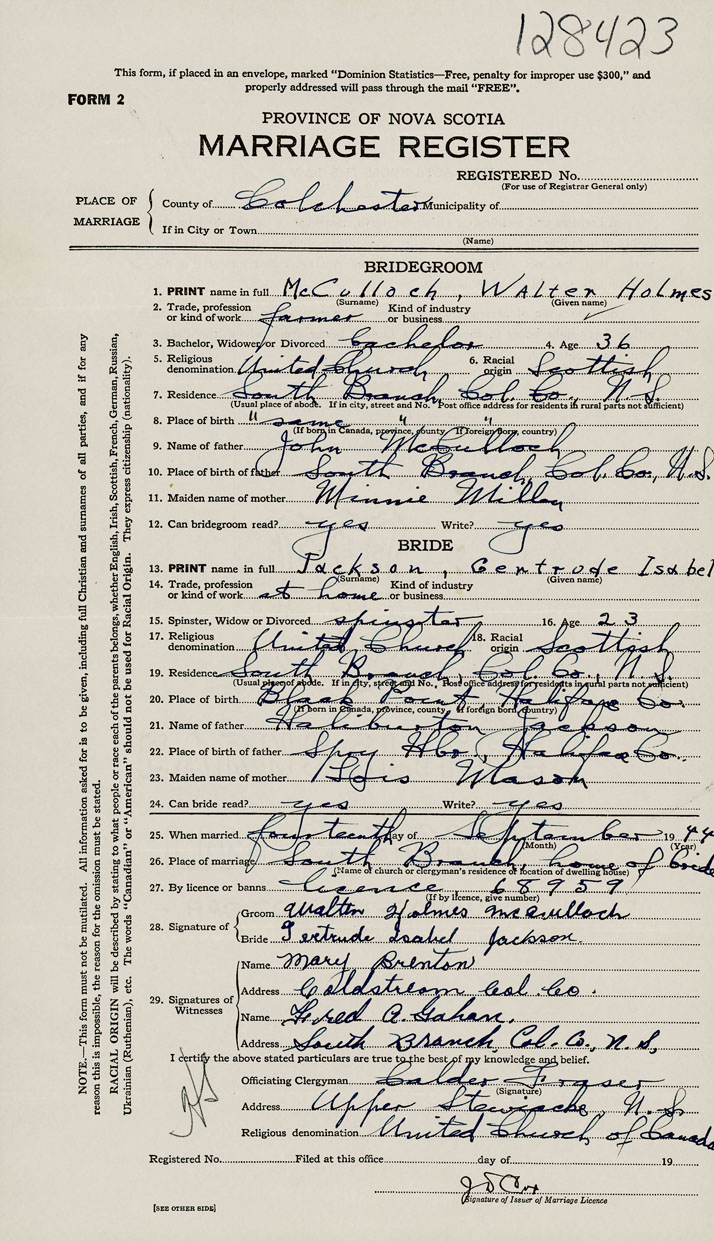 128423
This form, if placed in an envelope, marked "Dominion Statistics—Free, penalty for improper use $300," and
properly addressed will pass through the mail "FREE".
FORM 2
PROVINCE OF NOVA SCOTIA
MARRIAGE REGISTER
REGISTERED No.
(For use of Registrar General only)
PLACE OF MARRIAGE
County of Colchester Municipality of
If in City or Town
(Name)
BRIDEGROOM
1. PRINT name in full McCulloch, Walter Holmes
(Surname) (Given name)
2. Trade, profession or kind of work farmer Kind of industry or business
3. Bachelor, Widower or Divorced bachelor 4. Age 36
5. Religious denomination United Church 6. Racial origin Scottish
7. Residence South Branch, Col. Co., N.S.
(Usual place of abode. If in city, street and No. Post office address for residents in rural parts not sufficient)
8. Place of birth " same " "
(If born in Canada, province, county If foreign born, country)
9. Name of father John McCulloch
10. Place of birth of father South Branch, Col. Co., N.S.
11. Maiden name of mother Minnie Miller
12. Can bridegroom read? yes Write? yes
BRIDE
13. PRINT name in full Jackson, Gertrude Isabel
(Surname) (Given name)
14. Trade, profession or kind of work at home Kind of industry or business
15. Spinster, Widow or Divorced spinster 16. Age 23
17. Religious denomination United Church 18. Racial origin Scottish
19. Residence South Branch, Col. Co., N.S.
(Usual place of abode. If in city, street and No., Post office address for residents in rural parts not sufficient)
20. Place of birth Black Point, Halifax Co.
(If born in Canada, province, county If foreign born, country)
21. Name of father Haliburton Jackson
22. Place of birth of father Spry Hbr., Halifax Co.
23. Maiden name of mother Lois Mason
24. Can bride read? yes Write? yes
25. When married fourteenth day of September 1944
(Month) (Year)
26. Place of marriage South Branch, home of bride
(Name of church or clergyman's residence or location of dwelling house)
27. By licence or banns licence 68959
(If by licence, give number)
28. Signature of
Groom Walter Holmes McCulloch
Bride Gertrude Isabel Jackson.
29. Signatures of Witnesses
Name Mary Brenton
Address Coldstream Col. Co.
Name Fred A. Gahan.
Address South Branch, Col. Co., N.S.
I certify the above stated particulars are true to the best of my knowledge and belief.
Officiating Clergyman Calder Fraser
(Signature)
Address Upper Stewiacke, N.S.
Religious denomination United Church of Canada
Registered No. Filed at this office day of 19
J D Cox
(Signature of Issuer of Marriage Licence
[SEE OTHER SIDE]
NOTE.—This form must not be mutilated. All information asked for is to be given, including full Christian and surnames of all parties, and if for any
reason this is impossible, the reason for the omission must be stated.
RACIAL ORIGIN will be described by stating to what people or race each of the parents belongs, whether English, Irish, Scottish, French, German, Russian,
Ukrainian (Ruthenian), etc. The words "Canadian" or "American" should not be used for Racial Origin. They express citizenship (nationality).